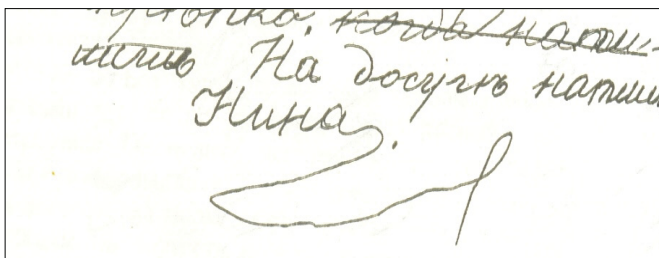 когда напи-
шишь На досугѣ напиши
Нина.